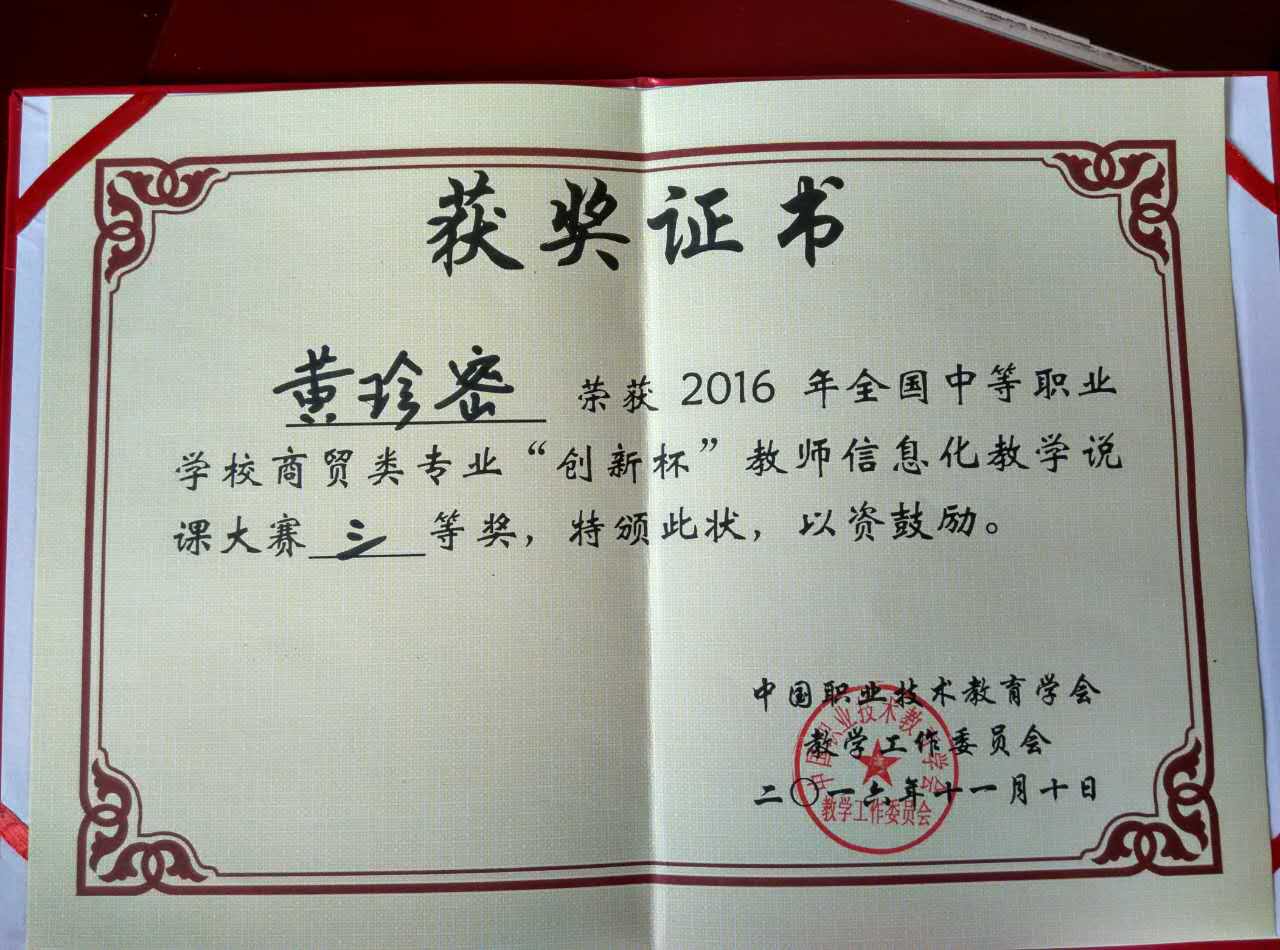 获奖证书
黄珍密 荣获 2016 年全国中等职业
学校商贸类专业“创新杯”教师信息化教学说
课大赛三等奖，特颁此状，以资鼓励。
中国职业技术教育学会
教学工作委员会
二〇一六年十一月十日
中国职业技术教育学会
教学工作委员会